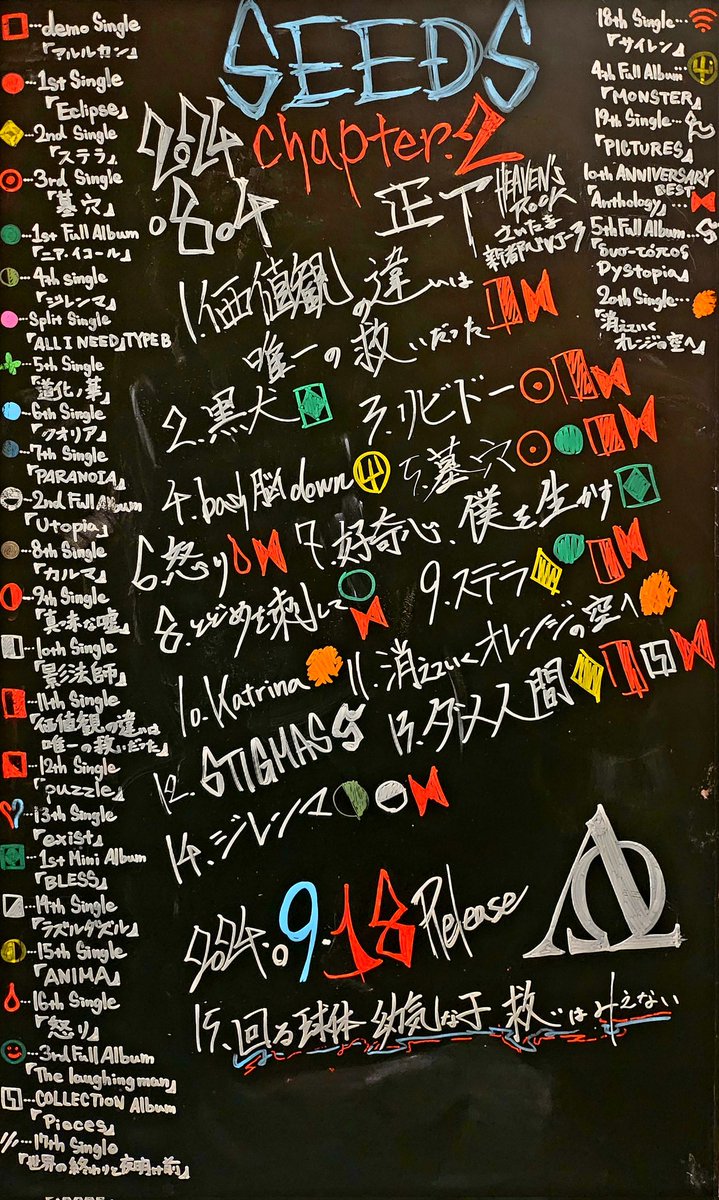 demo Single
『アルルカン』
1st Single
『Eclipse』
2nd Single
『ステラ』
3rd Single
『墓穴』
1st Full Album
『ニア・イコール』
4th single
『ジレンマ』
Split Single
『ALL I NEED』TYPE B
5th Single
『道化ノ華』
6th Single
『クオリア』
7th Single
『PARANOIA』
2nd Full Album
『Utopia』
8th Single
『カルマ』
9th Single
『真っ赤な嘘』
10th Single
『影法師』
11th Single
『価値観の違いは
唯一の救いだった』
12th Single
『puzzle』
13th Single
『exist』
1st Mini Album
『BLESS』
14th Single
『ラズルダズル』
15th Single
『ANIMA』
16th Single
『怒り』
3rd Full Album
『The laughing man』
COLLECTION Album
『Pieces』
17th Single
『世界の終わりと夜明け前』
SEEDS
2024 chapter.2
.8.4
HEAVEN'S
ROCK
さいたま
新都心VJ-3
1.価値観の違いは
唯一の救いだった
2.黒犬 3.リビドー
4.baby脳down 5.墓穴
6.怒り 7.好奇心、僕を生かす
8.とどめを刺して 9.ステラ
10.Katrina 11.消えていくオレンジの空へ
12.STIGMAS 13.ダメ人間
14.ジレンマ
2024.9.18 Release
15.回る球体 幼気な子 救いはみえない
18th Single
『サイレン』
4th Full Album
『MONSTER』
19th Single
『PICTURES』
10th ANNIVERSARY
BEST
『Anthology』
5th Full Album
Dystopia』
20th Single
『消えていく
オレンジの空へ』